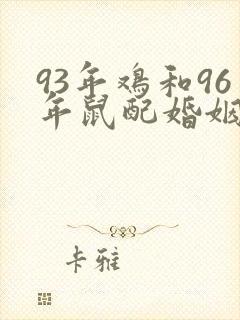 93年鸡和96
年鼠配婚姻
卡雅